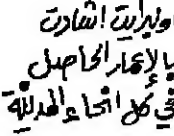 اولبرايت اشادت
بالإعمار الحاصل
في كل انحاء المدينة